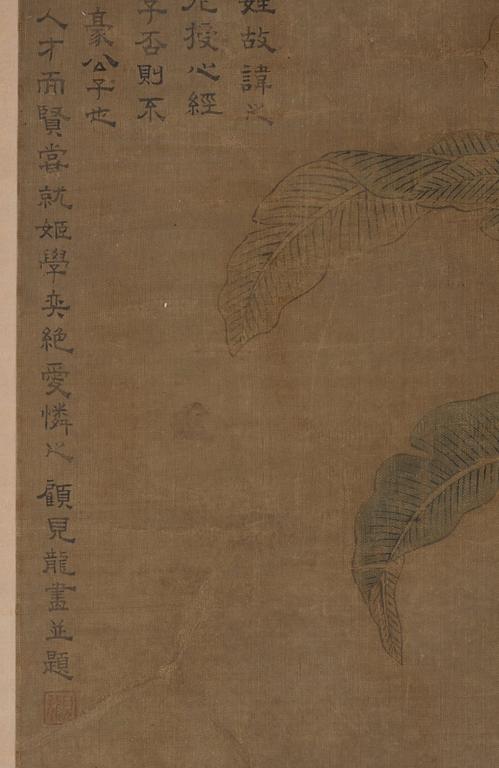 姓故諱之
授心經
字否則不
豪公子也
人才而賢當就姬學奕絶愛憐之 顧見龍畫並題